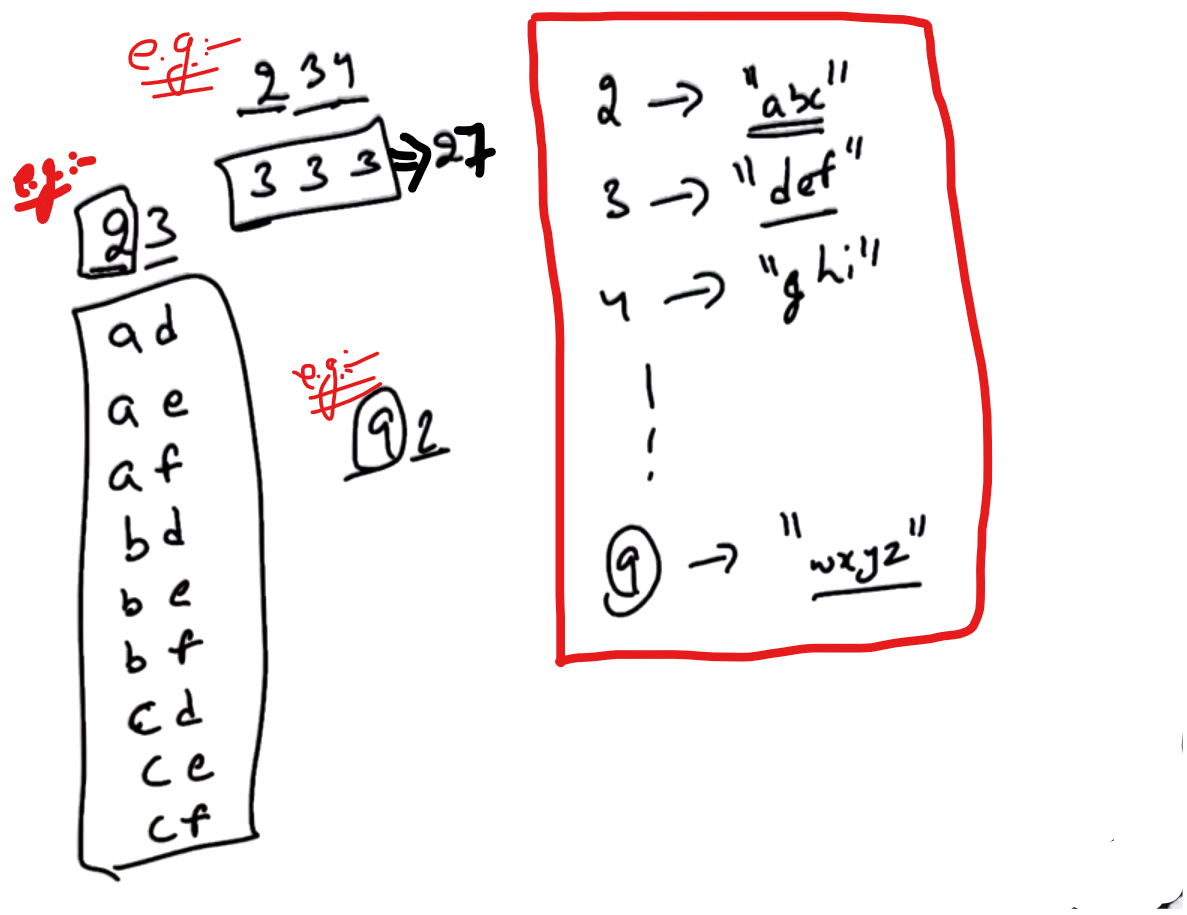 e.g:-
234
333 => 27
e.g:-
23
ad
ae
af
bd
be
bf
cd
ce
cf
e.g:-
92
2 → "abc"
3 → "def"
4 → "ghi"
9 → "wxyz"